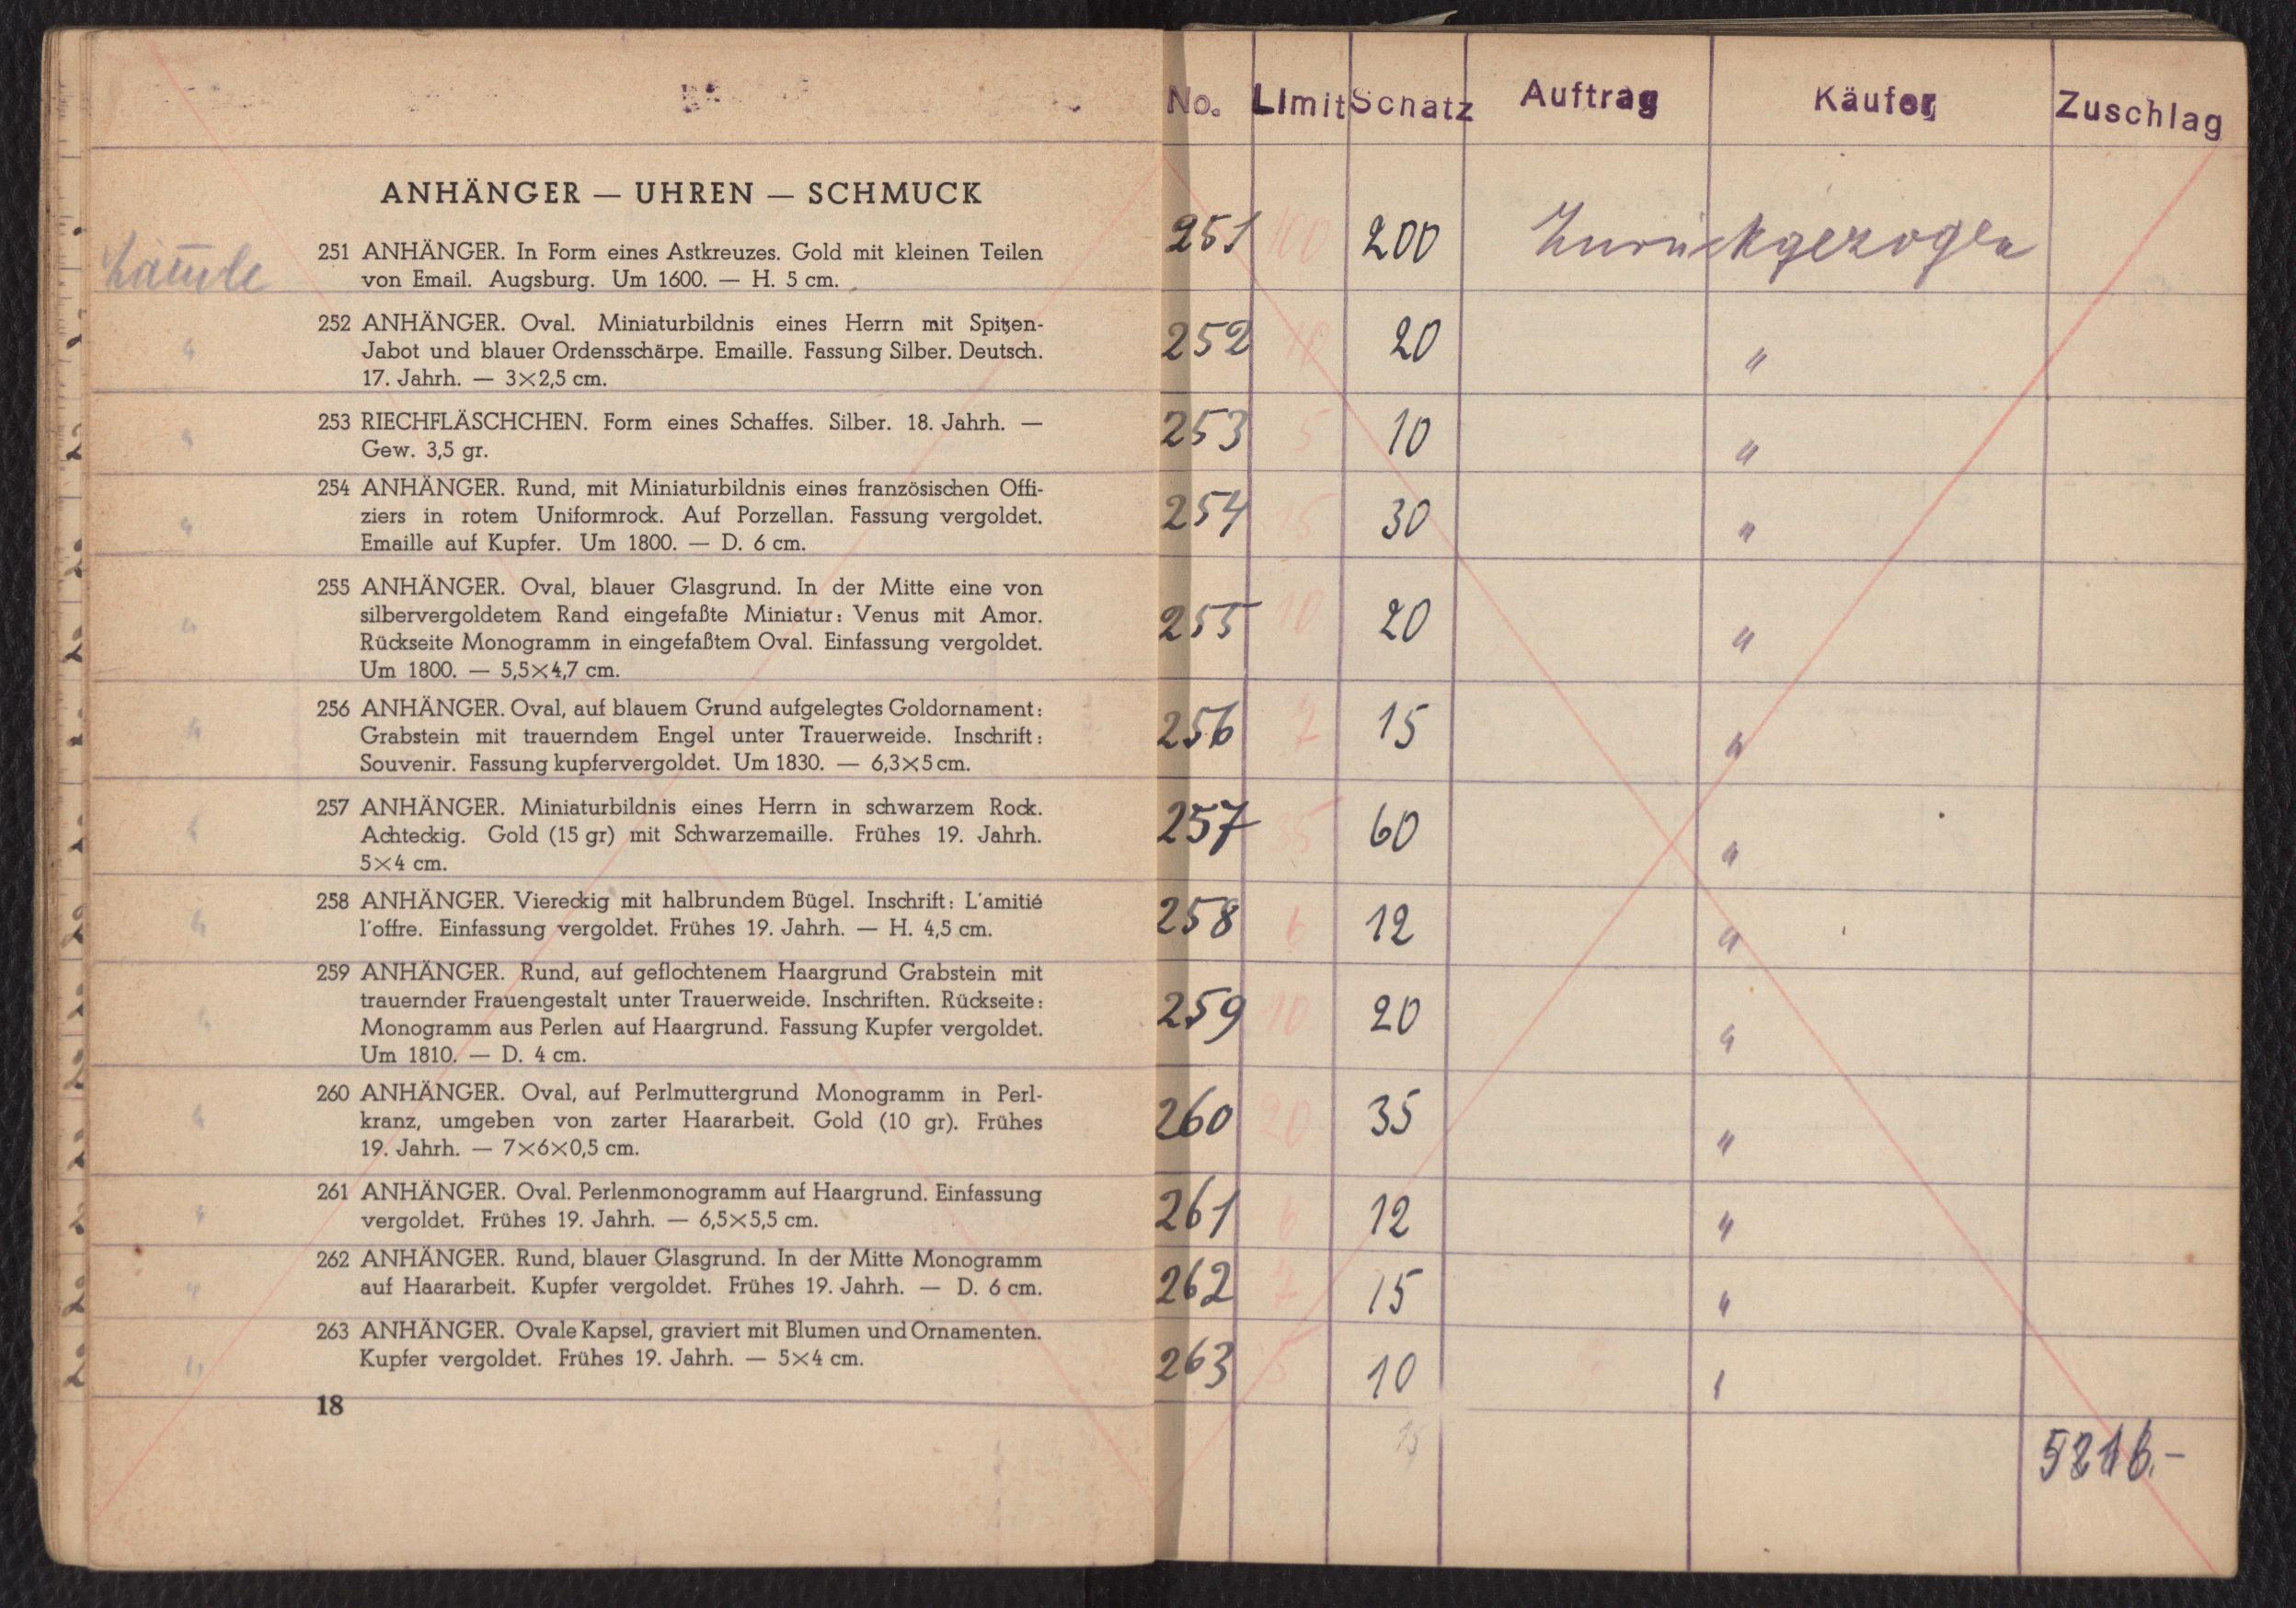 ANHÄNGER — UHREN — SCHMUCK
251 ANHÄNGER. In Form eines Astkreuzes. Gold mit kleinen Teilen
von Email. Augsburg. Um 1600. — H. 5 cm.
252 ANHÄNGER. Oval. Miniaturbildnis eines Herrn mit Spitzen-
Jabot und blauer Ordensschärpe. Emaille. Fassung Silber. Deutsch.
17. Jahrh. — 3×2,5 cm.
253 RIECHFLÄSCHCHEN. Form eines Schaffes. Silber. 18. Jahrh. —
Gew. 3,5 gr.
254 ANHÄNGER. Rund, mit Miniaturbildnis eines französischen Offi-
ziers in rotem Uniformrock. Auf Porzellan. Fassung vergoldet.
Emaille auf Kupfer. Um 1800. — D. 6 cm.
255 ANHÄNGER. Oval, blauer Glasgrund. In der Mitte eine von
silbervergoldetem Rand eingefaßte Miniatur: Venus mit Amor.
Rückseite Monogramm in eingefaßtem Oval. Einfassung vergoldet.
Um 1800. — 5,5×4,7 cm.
256 ANHÄNGER. Oval, auf blauem Grund aufgelegtes Goldornament:
Grabstein mit trauerndem Engel unter Trauerweide. Inschrift:
Souvenir. Fassung kupfervergoldet. Um 1830. — 6,3×5 cm.
257 ANHÄNGER. Miniaturbildnis eines Herrn in schwarzem Rock.
Achteckig. Gold (15 gr) mit Schwarzemaille. Frühes 19. Jahrh.
5×4 cm.
258 ANHÄNGER. Viereckig mit halbrundem Bügel. Inschrift: L'amitié
l'offre. Einfassung vergoldet. Frühes 19. Jahrh. — H. 4,5 cm.
259 ANHÄNGER. Rund, auf geflochtenem Haargrund Grabstein mit
trauernder Frauengestalt unter Trauerweide. Inschriften. Rückseite:
Monogramm aus Perlen auf Haargrund. Fassung Kupfer vergoldet.
Um 1810. — D. 4 cm.
260 ANHÄNGER. Oval, auf Perlmuttergrund Monogramm in Perl-
kranz, umgeben von zarter Haararbeit. Gold (10 gr). Frühes
19. Jahrh. — 7×6×0,5 cm.
261 ANHÄNGER. Oval. Perlenmonogramm auf Haargrund. Einfassung
vergoldet. Frühes 19. Jahrh. — 6,5×5,5 cm.
262 ANHÄNGER. Rund, blauer Glasgrund. In der Mitte Monogramm
auf Haararbeit. Kupfer vergoldet. Frühes 19. Jahrh. — D. 6 cm.
263 ANHÄNGER. Ovale Kapsel, graviert mit Blumen und Ornamenten.
Kupfer vergoldet. Frühes 19. Jahrh. — 5×4 cm.
18
No. Limit Schatz Auftrag Käufer Zuschlag
251 100 200 Zurückgezogen
252 10 20 "
253 5 10 "
254 15 30 "
255 10 20 "
256 7 15 "
257 35 60 "
258 6 12 "
259 10 20 "
260 20 35 "
261 6 12 "
262 7 15 "
263 5 10 "